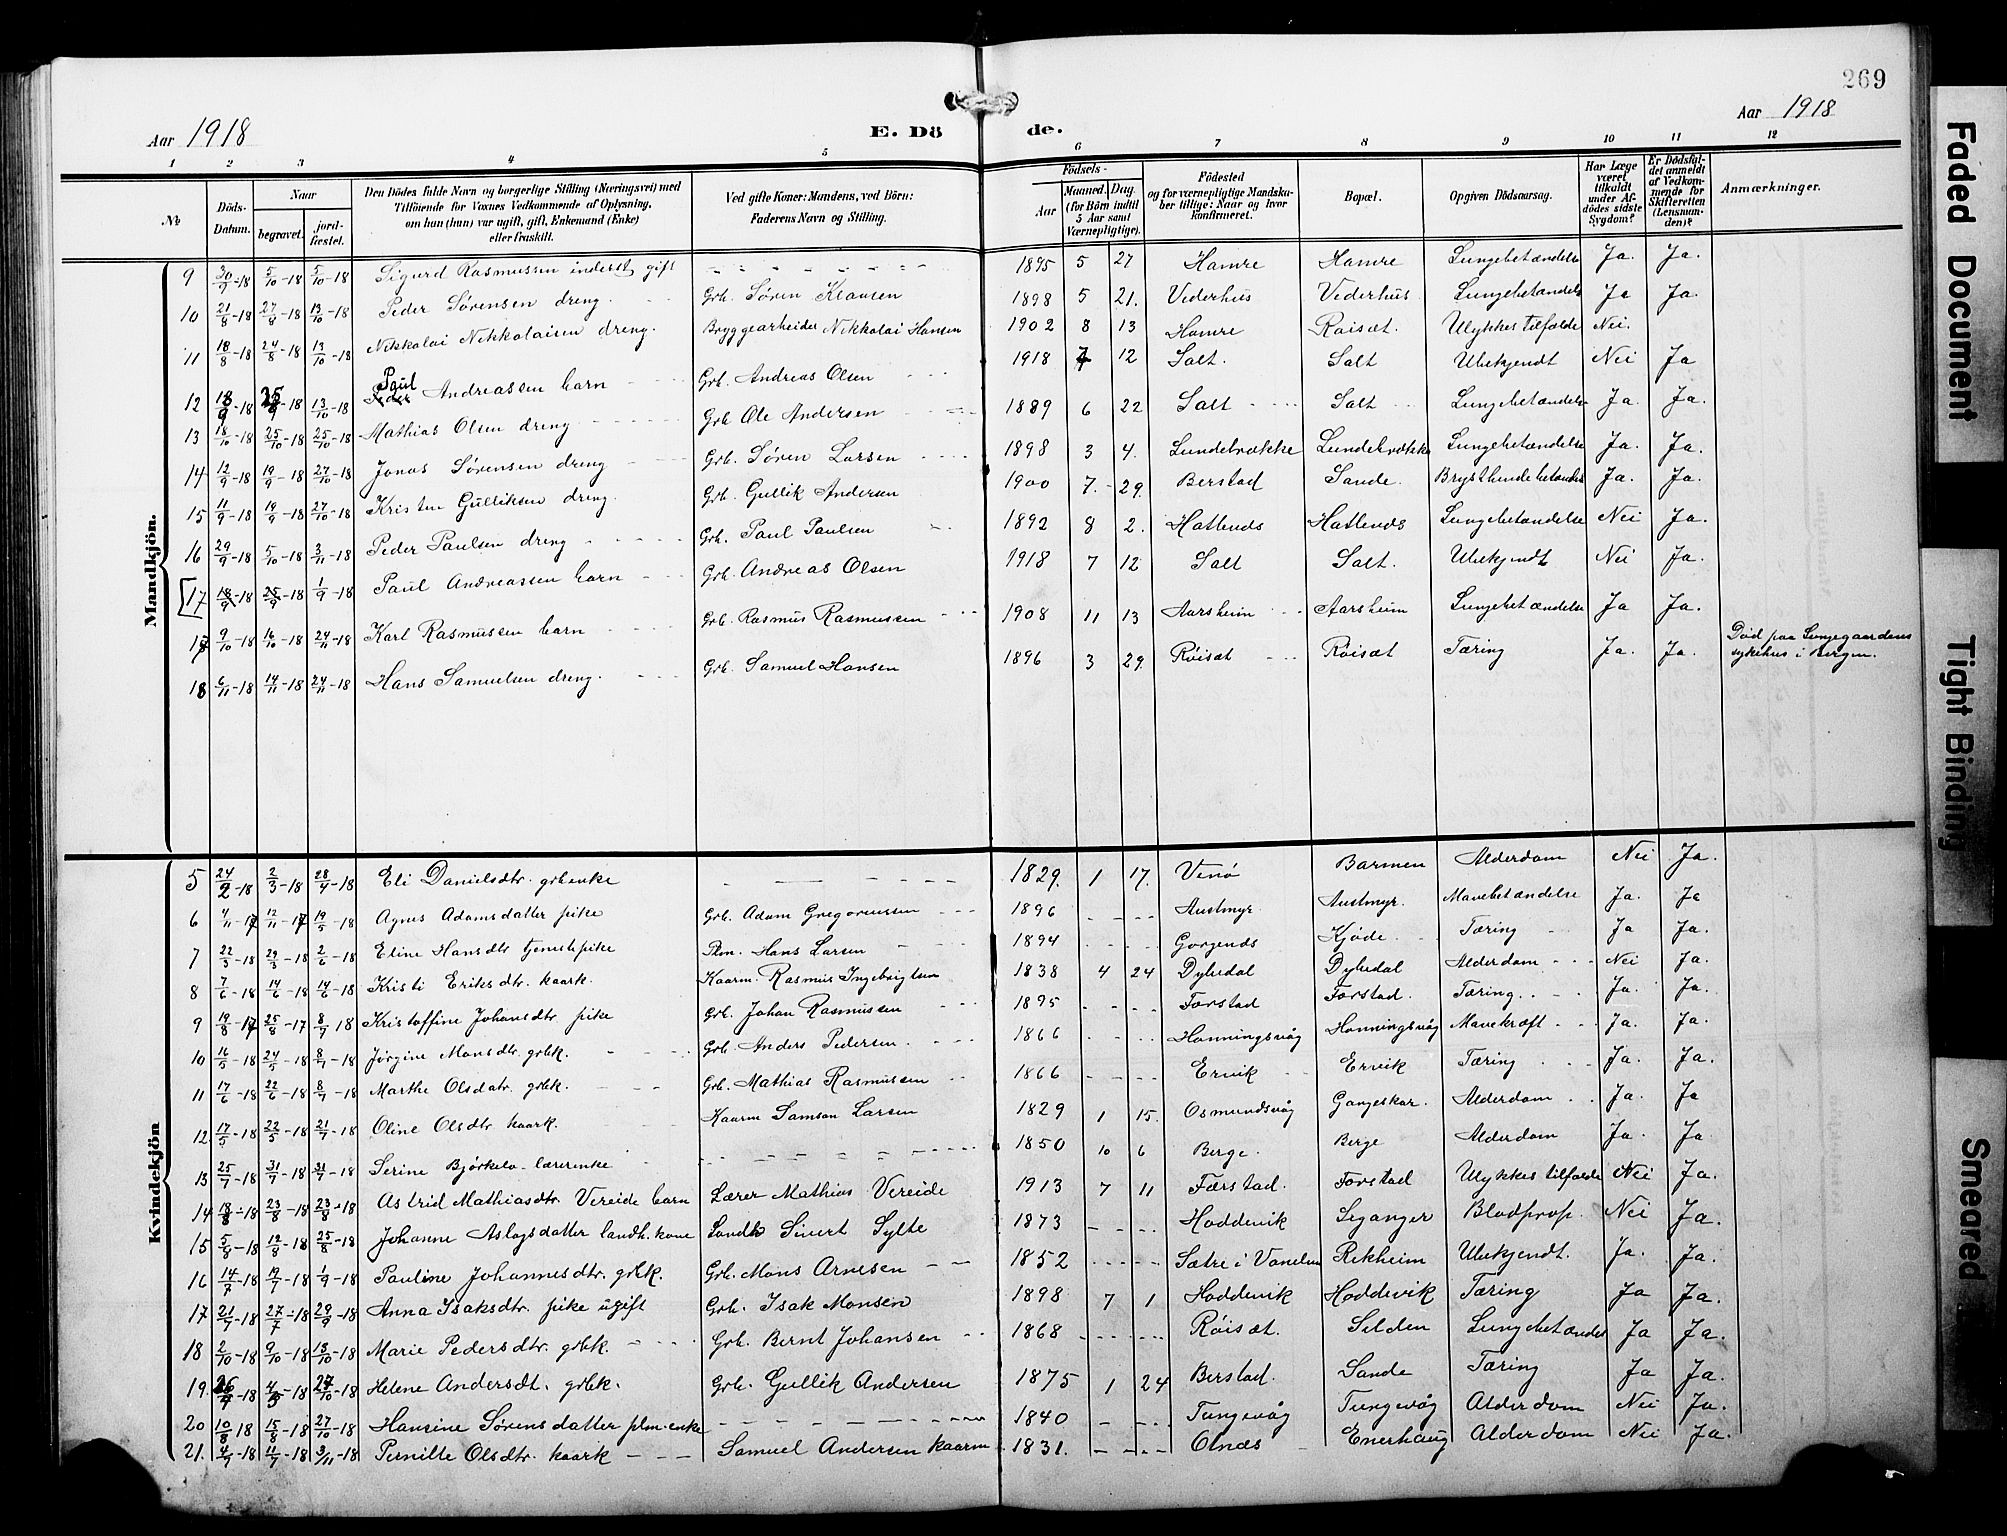 269
Aar 1918
E. Dö de.
Aar 1918
1 2 3 4 5 6 7 8 9 10 11 12
№
Döds-Datum.
Naar
begravet.
jord-fæstet.
Den Dödes fulde Navn og borgerlige Stilling (Næringsvei) med
Tilföiende for Voxnes Vedkommende af Oplysning,
om han (hun) var ugift, gift, Enkemand (Enke)
eller fraskilt.
Ved gifte Koner: Mandens, ved Börn:
Faderens Navn og Stilling.
Födsels-
Aar
Maaned. Dag.
(for Börn indtil
5 Aar samt
Værnepligtige).
Födested
og for værnepligtige Mandska-
ber tillige: Naar og hvor
konfirmeret.
Bopæl.
Opgiven Dödsaarsag.
Har Læge
været
tilkaldt
under Af-
dödes sidste
Sygdom?
Er Dödsfal-
det anmeldt
af Vedkom-
mende for
Skifteretten
(Lensman-
den)?
Anmærkninger.
Mandkjön.
9 30/9-18 5/10-18 5/10-18 Sigurd Rasmussen inderst gift 1895 5 27 Hamre Hamre Lungebetændelse Ja. Ja.
10 21/8-18 27/8-18 13/10-18 Peder Sørensen dreng. Grb. Søren Klausen 1898 5 21. Vederhus Vederhus Lungebetændelse Ja Ja.
11 18/8-18 24/8-18 13/10-18 Nikkolai Nikkolaisen dreng. Bryggearbeider Nikkolai Hansen 1902 8 13 Hamre Røisæt. Ulykkestilfælde Nei.
12 18/9-18 25/9-18 13/10-18 Paul Andreassen barn Grb. Andreas Olsen 1918 7 12 Salt. Salt Ubekjendt Nei Ja
13 18/10-18 25/10-18 25/10-18 Mathias Olsen dreng Grb Ole Andersen 1889 6 22 Salt Salt Lungebetændelse Ja. Ja.
14 12/9-18 19/9-18 27/10-18 Jonas Sørensen dreng Grb. Søren Larsen 1898 3 4. Lundebrekke Lundebrekke Lungebetændelse Ja. Ja.
15 11/9-18 19/9-18 27/10-18 Kristen Gulliksen dreng. Grb. Gullik Andersen 1900 7. 29. Berstad Sande. Brysthindebetændelse Ja. Ja.
16 29/9-18 5/10-18 3/11-18 Peder Paulsen dreng Grb. Paul Paulsen 1892 8 2. Hatlenås Hatlenås Lungebetændelse Nei Ja.
[17 18/9-18 25/9-18 1/9-18 Paul Andreassen barn Grb. Andreas Olsen 1918 7 12 Salt Salt. Ubekjendt Nei Ja.
17 9/10-18 16/10-18 24/11-18 Karl Rasmussen barn Grb. Rasmus Rasmussen 1908 11 13 Aarsheim Aarsheim Lungebetændelse Ja Ja.
18 6/11-18 14/11-18 24/11-18 Hans Samuelsen dreng. Grb. Samuel Hansen 1896 3 29. Røisæt Røisæt Tæring Ja. Ja. Død paa Lungegaardens
sykehus i Bergen.
Kvindekjön
5 24/2-18 2/3-18 28/4-18 Eli Danielsdtr. grbenke 1829. 1 17. Venø Barmen Alderdom Nei Ja.
6 4/11-17 12/11-17 19/5-18 Agnes Adamsdatter pike Grb. Adam Gregoriussen 1896 Austmyr. Austmyr. Mavebetændelse Ja. Ja
7 22/3-18 29/3-18 2/6-18 Eline Hansdtr tjenestepike Plm. Hans Larsen 1894 Kjøde. Tæring Ja Ja.
8 7/6-18 14/6-18 14/6-18 Kristi Eriksdtr. kaark. Kaarm. Rasmus Ingebrigtsen 1838 4 24 Dybedal Dybedal Alderdom Nei Ja.
9 19/8-17 25/8-17 8/7 18 Kristoffine Johansdtr. pike Grb. Johan Rasmussen 1895 Forstad Forstad. Tæring. Ja. Ja.
10 16/5-18 24/5-18 8/7-18 Jørgine Monsdtr. grbk. Grb. Anders Pedersen. 1866 Honningsvåg Honningsvåg Mavekræft Ja. Ja.
11 17/6-18 22/6-18 8/7-18 Marthe Olsdatr. grbk. Grb. Mathias Rasmussen 1866 Ervik Ervik Tæring Ja. Ja.
12 17/5-18 22/5-18 21/7-18 Oline Olsdtr. kaark. Kaarm Samson Larsen 1829 1 15. Osmundsvåg Gangeskar. Alderdom Ja. Ja
13 25/7-18 31/7-18 31/7-18 Serine Bjørkelo lærerenke 1850 10 6 Berge. Berge Alderdom Ja. Ja.
14 18/8-18 23/8-18 23/8-18 Astrid Mathiasdtr. Vereide barn Lærer Mathias Vereide 1913 7 11 Færstad. Forstad Ulykkestilfælde Nei Ja.
15 5/8-18 12/8-18 25/8-18 Johanne Aslagsdatter landh. kone Landh Sivert Sylte 1873 Hoddevik Leganger Blodprop. Nei Ja.
16 14/7-18 19/7-18 1/9-18 Pauline Johannesdtr. grbk. Grb. Mons Arnesen 1852 Sætre i Vanelven Rekheim Ubekjendt. Ja. Ja.
17 21/7-18 27/7-18 29/9-18 Anna Isaksdtr. pike ugift Grb. Isak Monsen 1898 7 1 Hoddevik Hoddevik Tæring Ja Ja.
18 2/10-18 9/10-18 13/10-18 Marie Pedersdtr. grbk. Grb. Bernt Johansen 1868 Røisæt. Selden Lungebetændelse Ja Ja.
19. 26/4-18 4/5-18 27/10-18 Helene Andersdt. grbk. Grb. Gullik Andersen 1875 1 24 Berstad. Sande Tæring Ja Ja.
20 10/8 18 15/8-18 27/10-18 Hansine Sørensdatter plm-enke 1840 Tungevåg Tungevåg Alderdom Nei Ja.
21. 4/7-18 11/7-18 3/11-18 Pernille Olsdtr. kaark Samuel Andersen kaarm 1831. Otnæs Enerhaug Alderdom Nei Ja.
Faded Document
Tight Binding
Smeared